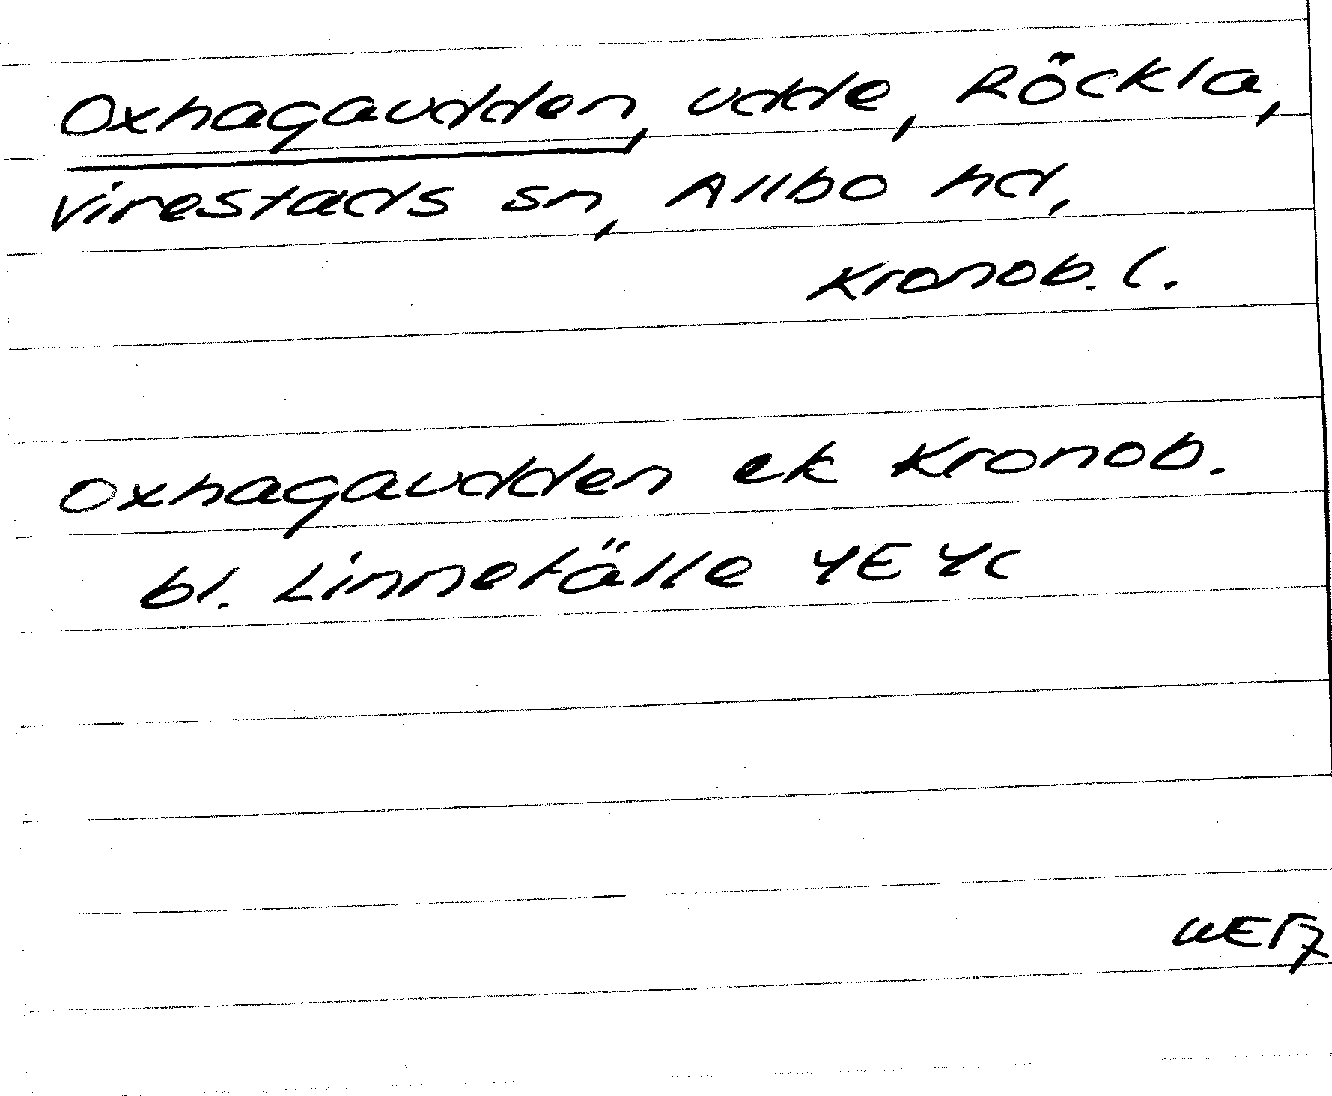 Oxhagaudden, udde, Röckla,
Virestads sn, Allbo hd,
Kronob. l.
Oxhagaudden ek Kronob.
bl. Linnefälle 4E 4c